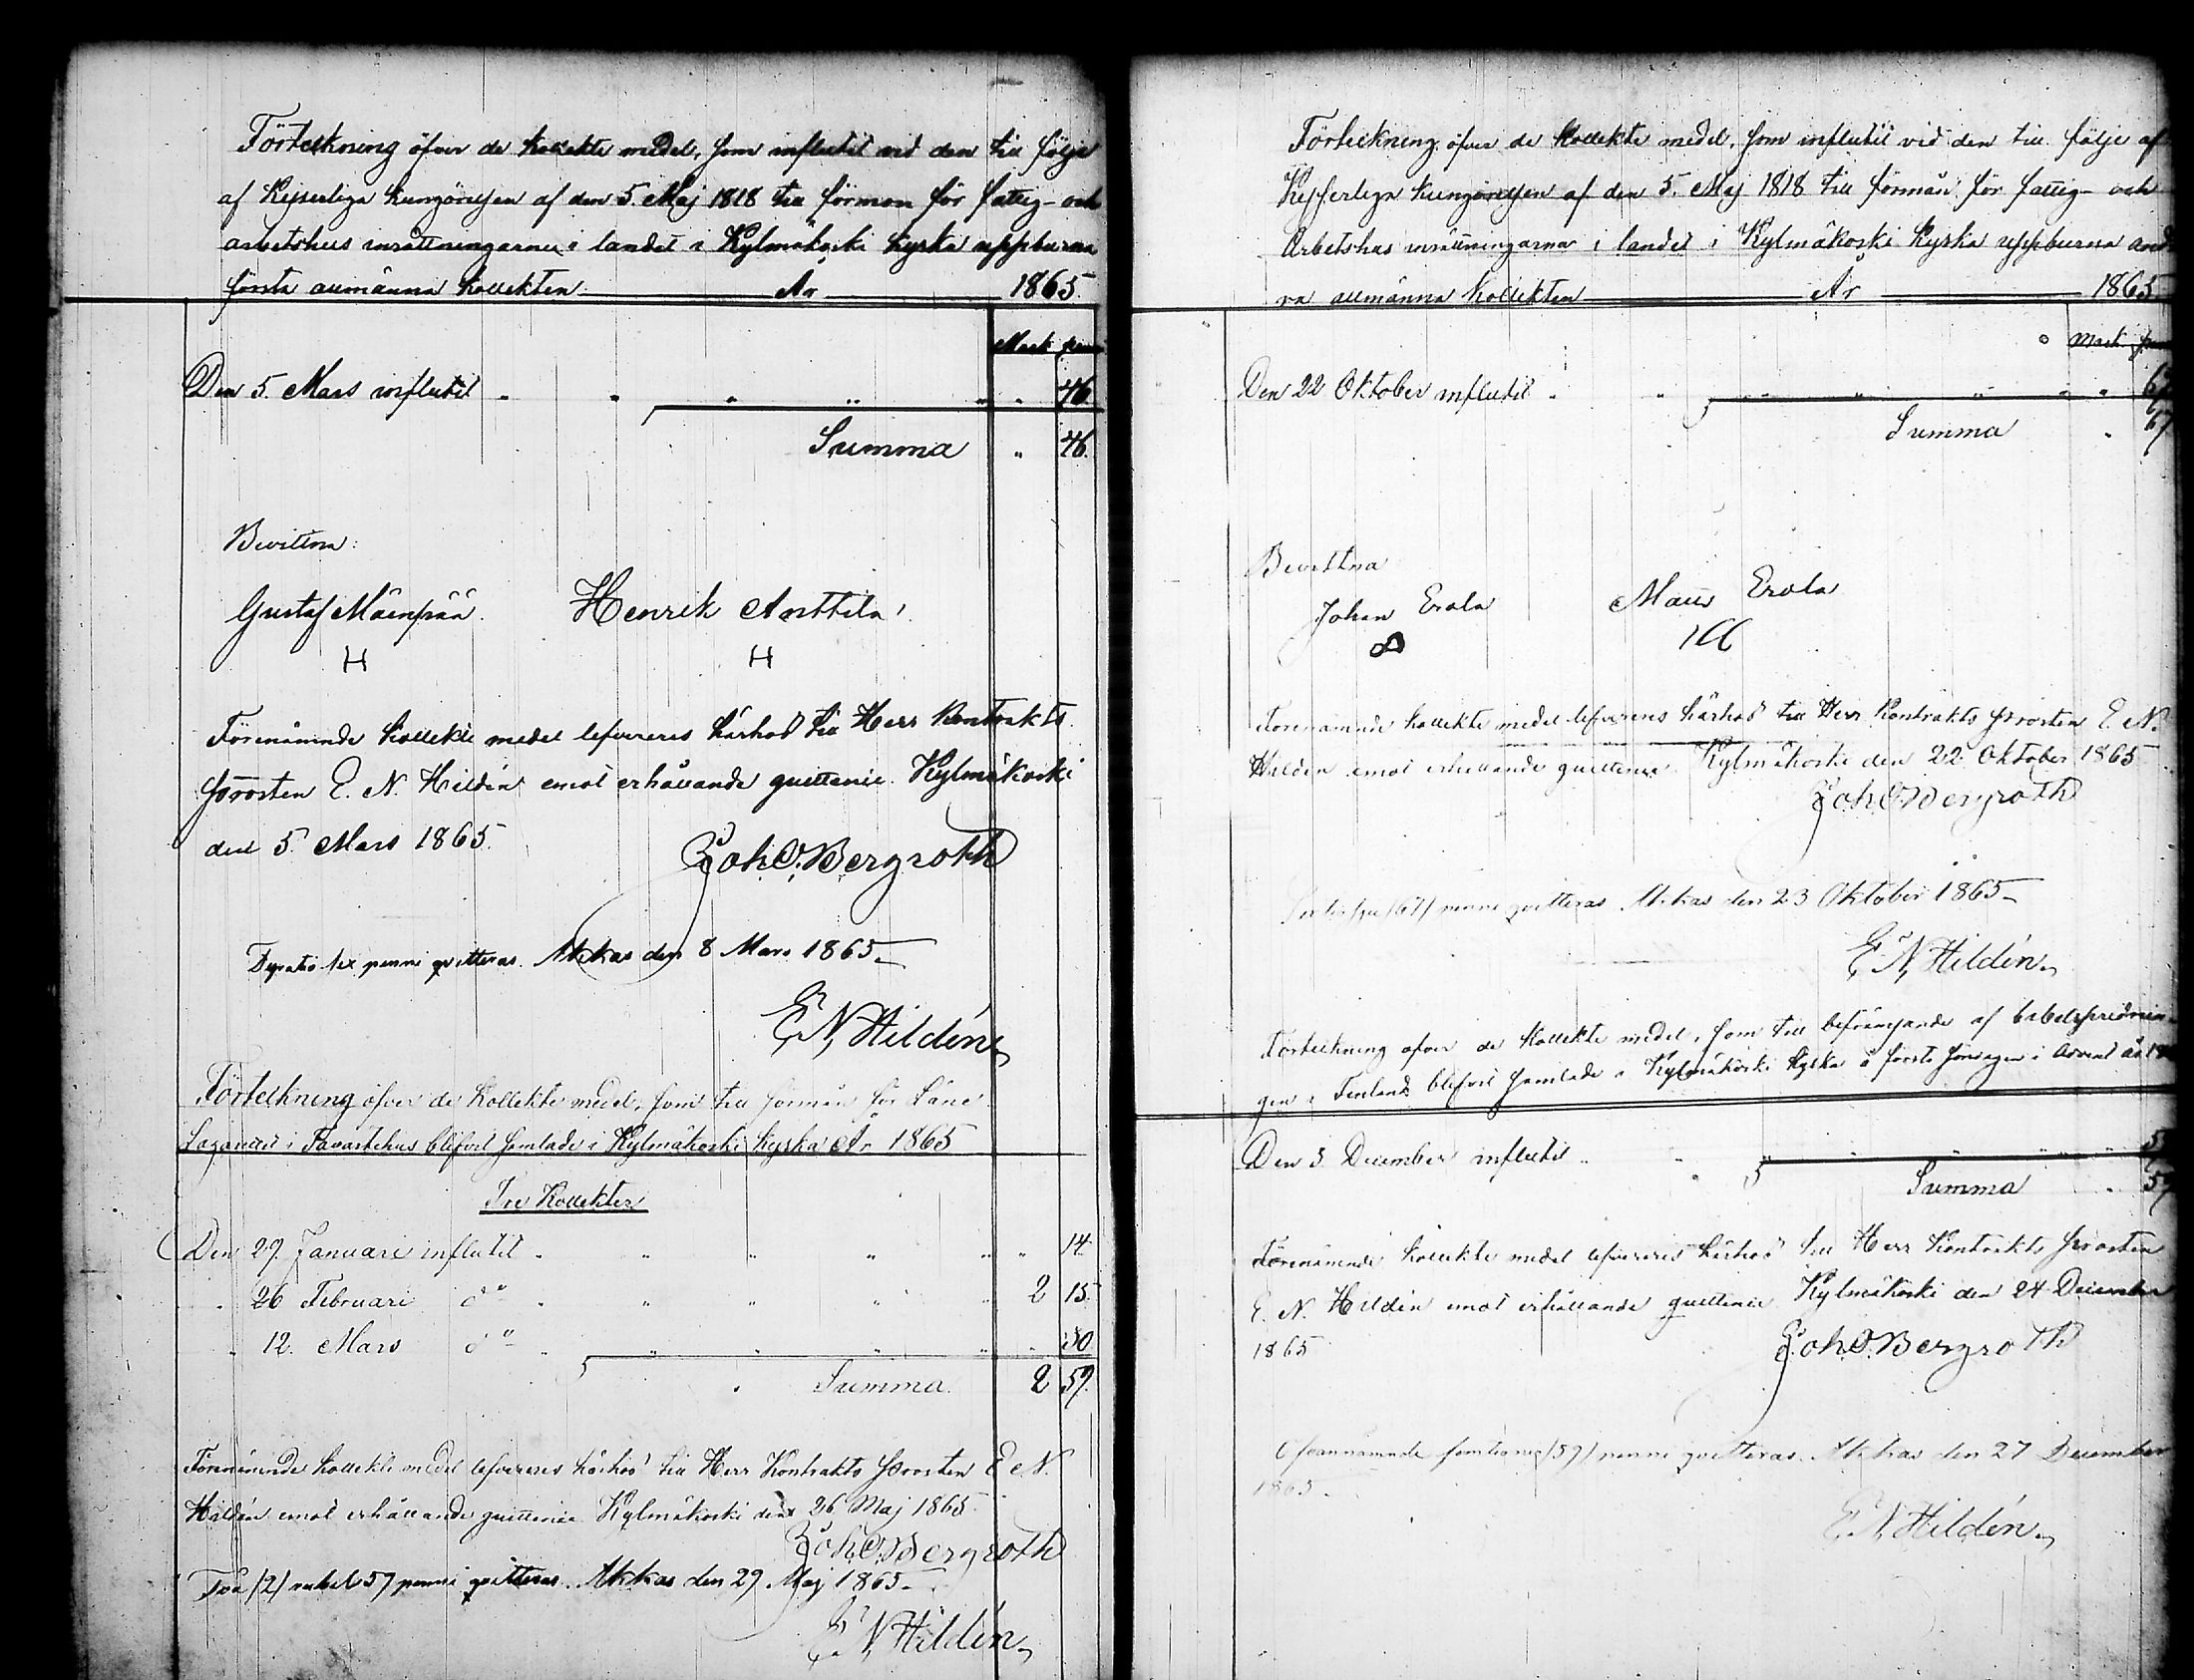 Förteckning öfver de kollekte medel, som influtit vid den till följe
af Kejserliga Kungörelsen af den 5. Maj 1818 till förmon för fattig- och
arbetshus inrättningarne i landet i Kylmäkoski kyrka uppburna
första allmänna kollekten År 1865.
Mark penni
Den 5. Mars influtit " " " " " " 46.
Summa " 46.
Bevittna:
Gustaf Mäenpää. Henrik Anttila.
H H
Förenämnde kollekte medel lefvereres härhos till Herr Kontrakts
Prosten E. N. Hildén emot erhållande quittence. Kylmäkoski
den 5 Mars 1865.
Joh. O. Bergroth
Fyratio sex penni qvitteras. Akkas den 8 Mars 1865.
E. N. Hildén
Förteckning öfver de kollekte medel, som till förmån för Läns
Lazarettet i Tavastehus blifvit samlade i Kylmäkoski kyrka År 1865
Tre Kollekter
Den 29. Januari influtit " " " " " " 14.
" 26 Februari d:o " " " " " 2 15.
" 12. Mars d:o " " " " " " 30.
Summa 2 59.
Förenämnde kollekte medel lefvereres härhos till Herr Kontrakts Prosten E. N.
Hildén emot erhållande quittence Kylmäkoski den 26 Maj 1865.
Joh. O. Bergroth
Två (2) rubel 57 penni qvitteras. Akkas den 29 Maj 1865.
E. N. Hildén
Förteckning öfver de kollekte medel, som influtit vid den till följe af
Kejserliga kungörelsen af den 5. Maj 1818 till förmån för fattig- och
Arbetshus inrättningarna i landet i Kylmäkoski kyrka uppburna and
ra allmänna kollekten År 1865
Mark
Den 22 Oktober influtit " " " " " " 67
Summa " 67
Bevittna
Johan Erola Matts Erola
Förenämnde kollekte medel lefvereres härhos till Herr Kontrakts Prosten E. N.
Hildén emot erhållande quittence. Kylmäkoski den 22 Oktober 1865
Joh. O. Bergroth
Sextiosju (67) penni qvitteras Akkas den 23 Oktober 1865
E. N. Hildén
Förteckning öfver de kollekte medel, som till befrämjande af bibelspridnin
gen i Finland blifvit samlade i Kylmäkoski kyrka å första söndagen i Advent år
Den 3 December influtit " " " " " 59
Summa " 59
Förenämnde kollekte medel lefvereres härhos till Herr Kontrakts Prosten
E. N. Hildén emot erhållande quittence Kylmäkoski den 24 December
1865
Joh. O. Bergroth
Ofvannämnde femtionio (59) penni qvitteras. Akkas den 27 December
1865.
E. N. Hildén